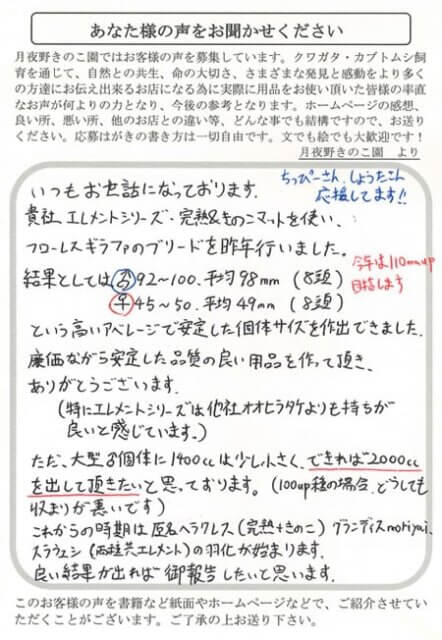 あなた様の声をお聞かせください
月夜野きのこ園ではお客様の声を募集しています。クワガタ・カブトムシ飼
育を通じて、自然との共生、命の大切さ、さまざまな発見と感動をより多く
の方達にお伝え出来るお店になる為に実際に用品をお使い頂いた皆様の率直
なお声が何よりの力となり、今後の参考となります。ホームページの感想、
良い所、悪い所、他のお店との違い等、どんな事でも結構ですので、お送り
ください。応募はがきの書き方は一切自由です。文でも絵でも大歓迎です！
月夜野きのこ園 より
ちっぴーさん、しょうたこん
応援してます!!
いつもお世話になっております.
貴社 エレメントシリーズ・完熟&きのこマットを使い、
フローレスギラファのブリードを昨年行いました。
今年は110mmup
目指します
結果としては♂92～100.平均98mm (8頭)
♀45～50.平均49mm (8頭)
という高いアベレージで安定した個体サイズを作出できました.
廉価ながら安定した品質の良い用品を作って頂き.
ありがとうございます.
(特にエレメントシリーズは他社オオヒラタケよりも持ちが
良いと感じています。)
ただ、大型♂個体に1400ccは少し小さく、できれば2000cc
を出して頂きたいと思っております。(100up種の場合、どうしても
収まりが悪いです)
これからの時期は 原名ヘラクレス (完熟+きのこ) グランディスmoriyai、
スラウェシ (両種共エレメント) の羽化が始まります.
良い結果が出れば 御報告したいと思います.
このお客様の声を書籍など紙面やホームページなどで、ご紹介させてい
ただくことがございます。ご了承の上お送り下さい。